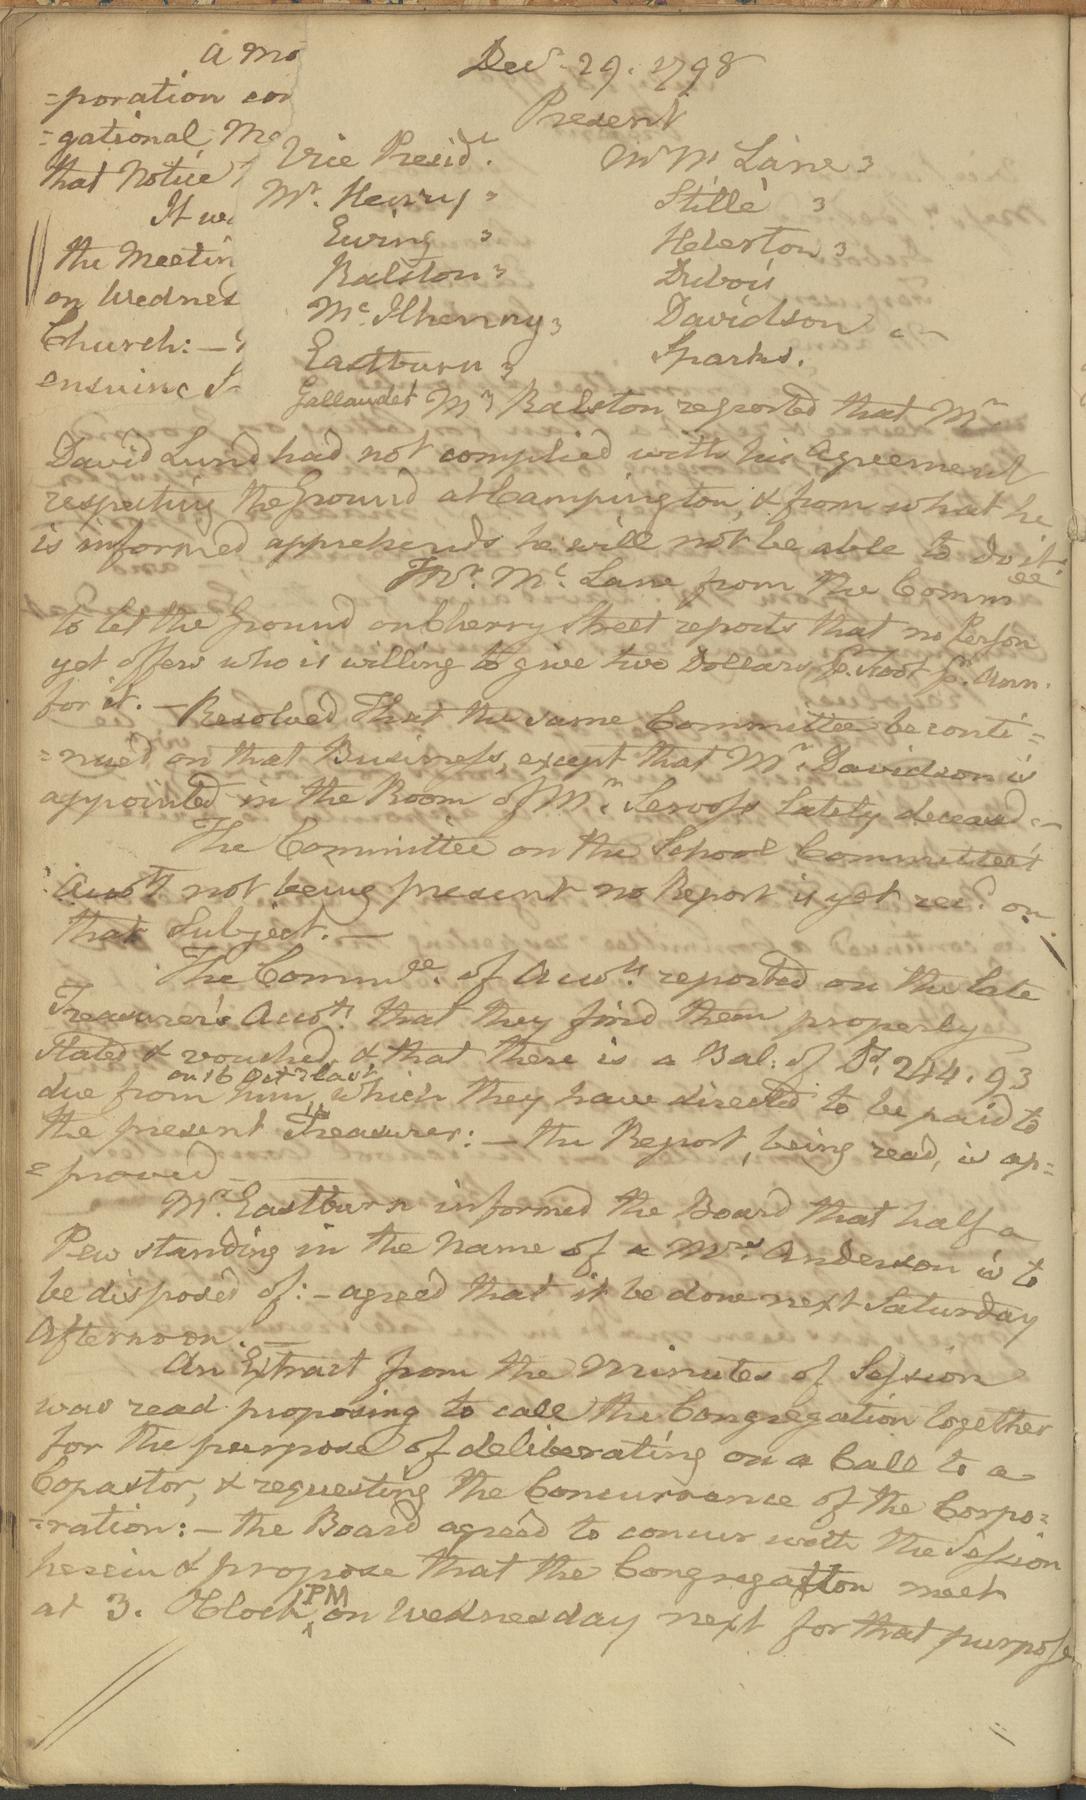 a Mo
=poration con
=gational Me
that Notice
It wa
the Meetin
on Wednes
Church: —
ensuing S
Decr. 29. 1798
Present
Vice Presidt.
Mr. Henry
Ewing
Ralston
Mc.Ilhenny
Eastburn
Gallaudet
Mr Mc Lane
Stillé
Helerton
Dubois
Davidson
Sparks.
Mr Ralston reported that Mr
David Lund had not complied with his Agreement
respecting the Ground at Campington, & from what he
is informed apprehends he will not be able to do it.
Mr. Mc. Lane from the Commee
to let the Ground on Cherry Street reports that no Person
yet offers who is willing to give two Dollars pr. Foot pr. Ann.
for it. — Resolved That the same Committee be conti=
=nued on that Business, except that Mr. Davidson is
appointed in the Room of Mr. Servoss lately deceased. —
The Committee on the School Committee's
Accots not being present no Report is yet recd. on
that Subject. —
The Commee. of Accots reported on the late
Treasurer's Accots. that they find them properly
Stated & vouched, & that there is a Bal: of Ds. 244.93
on 16 Octr last
due from him, which they have directed to be paid to
the present Treasurer: — the Report, being read, is ap=
=proved —
Mr. Eastburn informed the Board that half a
Pew standing in the Name of a Mrs. Anderson is to
be disposed of: — agreed that it be done next Saturday
Afternoon. —
An Extract from the Minutes of Session
was read proposing to call the Congregation together
for the purpose of deliberating on a Call to a
Copastor, & requesting the Concurrance of the Corpo=
=ration: — the Board agreed to concur with the Session
herein & propose that the Congregation meet
at 3. OClock PM on Wednesday next for that purpose